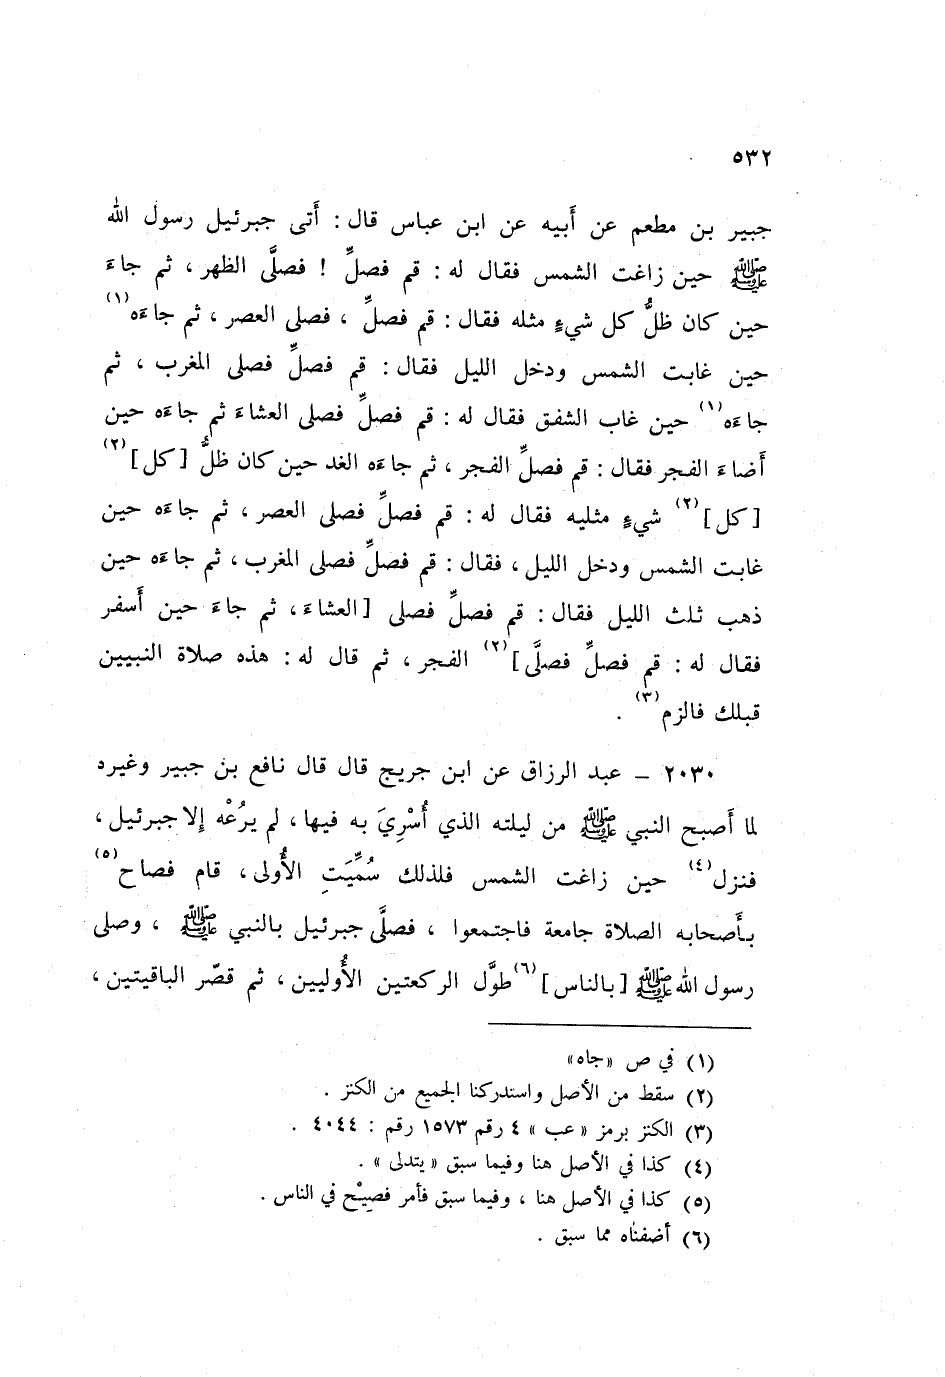 ٥٣٢
جبير بن مطعم عن أَبيه عن ابن عباس قال : أَتى جبرئيل رسول الله
ﷺ حين زاغت الشمس فقال له : قم فصلِّ ! فصلَّى الظهر ، ثم جاءَ
حين كان ظلُّ كل شيءٍ مثله فقال : قم فصلِّ ، فصلى العصر ، ثم جاءَه(١)
حين غابت الشمس ودخل الليل فقال : قم فصلِّ فصلى المغرب ، ثم
جاءَه(١) حين غاب الشفق فقال له : قم فصلِّ فصلى العشاءَ ثم جاءَه حين
أَضاءَ الفجر فقال : قم فصلِّ الفجر ، ثم جاءَه الغد حين كان ظلُّ [كل](٢)
[كل](٢) شيءٍ مثليه فقال له : قم فصلِّ فصلى العصر ، ثم جاءَه حين
غابت الشمس ودخل الليل ، فقال : قم فصلِّ فصلى المغرب ، ثم جاءَه حين
ذهب ثلث الليل فقال : قم فصلِّ فصلى [العشاءَ ، ثم جاءَ حين أَسفر
فقال له : قم فصلِّ فصلَّى](٢) الفجر ، ثم قال له : هذه صلاة النبيين
قبلك فالزم(٣) .
٢٠٣٠ – عبد الرزاق عن ابن جريج قال قال نافع بن جبير وغيره
لما أَصبح النبي ﷺ من ليلته الذي أُسْرِيَ به فيها ، لم يرُعْه إِلا جبرئيل ،
فنزل(٤) حين زاغت الشمس فلذلك سُمِّيَتِ الأُولى ، قام فصاح(٥)
بأَصحابه الصلاة جامعة فاجتمعوا ، فصلَّى جبرئيل بالنبي ﷺ ، وصلى
رسول الله ﷺ [بالناس](٦) طوَّل الركعتين الأُوليين ، ثم قصّر الباقيتين ،
(١) في ص «جاه»
(٢) سقط من الأصل واستدركنا الجميع من الكنز .
(٣) الكنز برمز «عب» ٤ رقم ١٥٧٣ رقم : ٤٠٤٤ .
(٤) كذا في الأصل هنا وفيما سبق «يتدلى» .
(٥) كذا في الأصل هنا ، وفيما سبق فأمر فصِيْح في الناس .
(٦) أضفناه مما سبق .